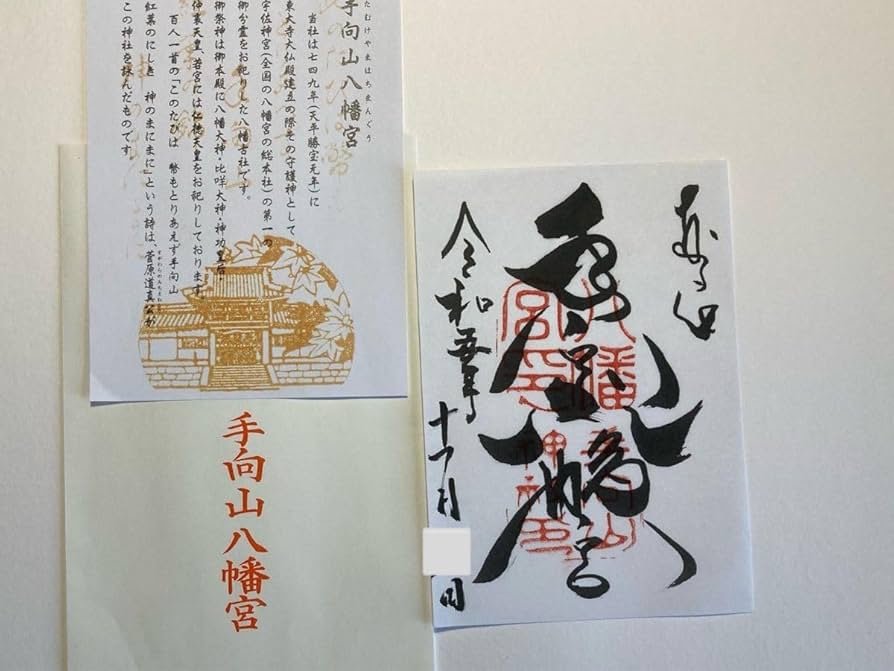 たむけやまはちまんぐう
手向山八幡宮
当社は七四九年(天平勝宝元年)に
東大寺大仏殿建立の際その守護神として
宇佐神宮(全国の八幡宮の総本社)の第一の
御分霊をお祀りした八幡古社です。
御祭神は御本殿に八幡大神・比咩大神・神功皇后・
仲哀天皇、若宮には仁徳天皇をお祀りしております。
百人一首の「このたびは 幣もとりあえず手向山
紅葉のにしき 神のまにまに」という詩は、菅原道真公が
すがわらのみちざねこう
この神社を詠んだものです。
手向山八幡宮
八幡宮
令和五年
十一月
日